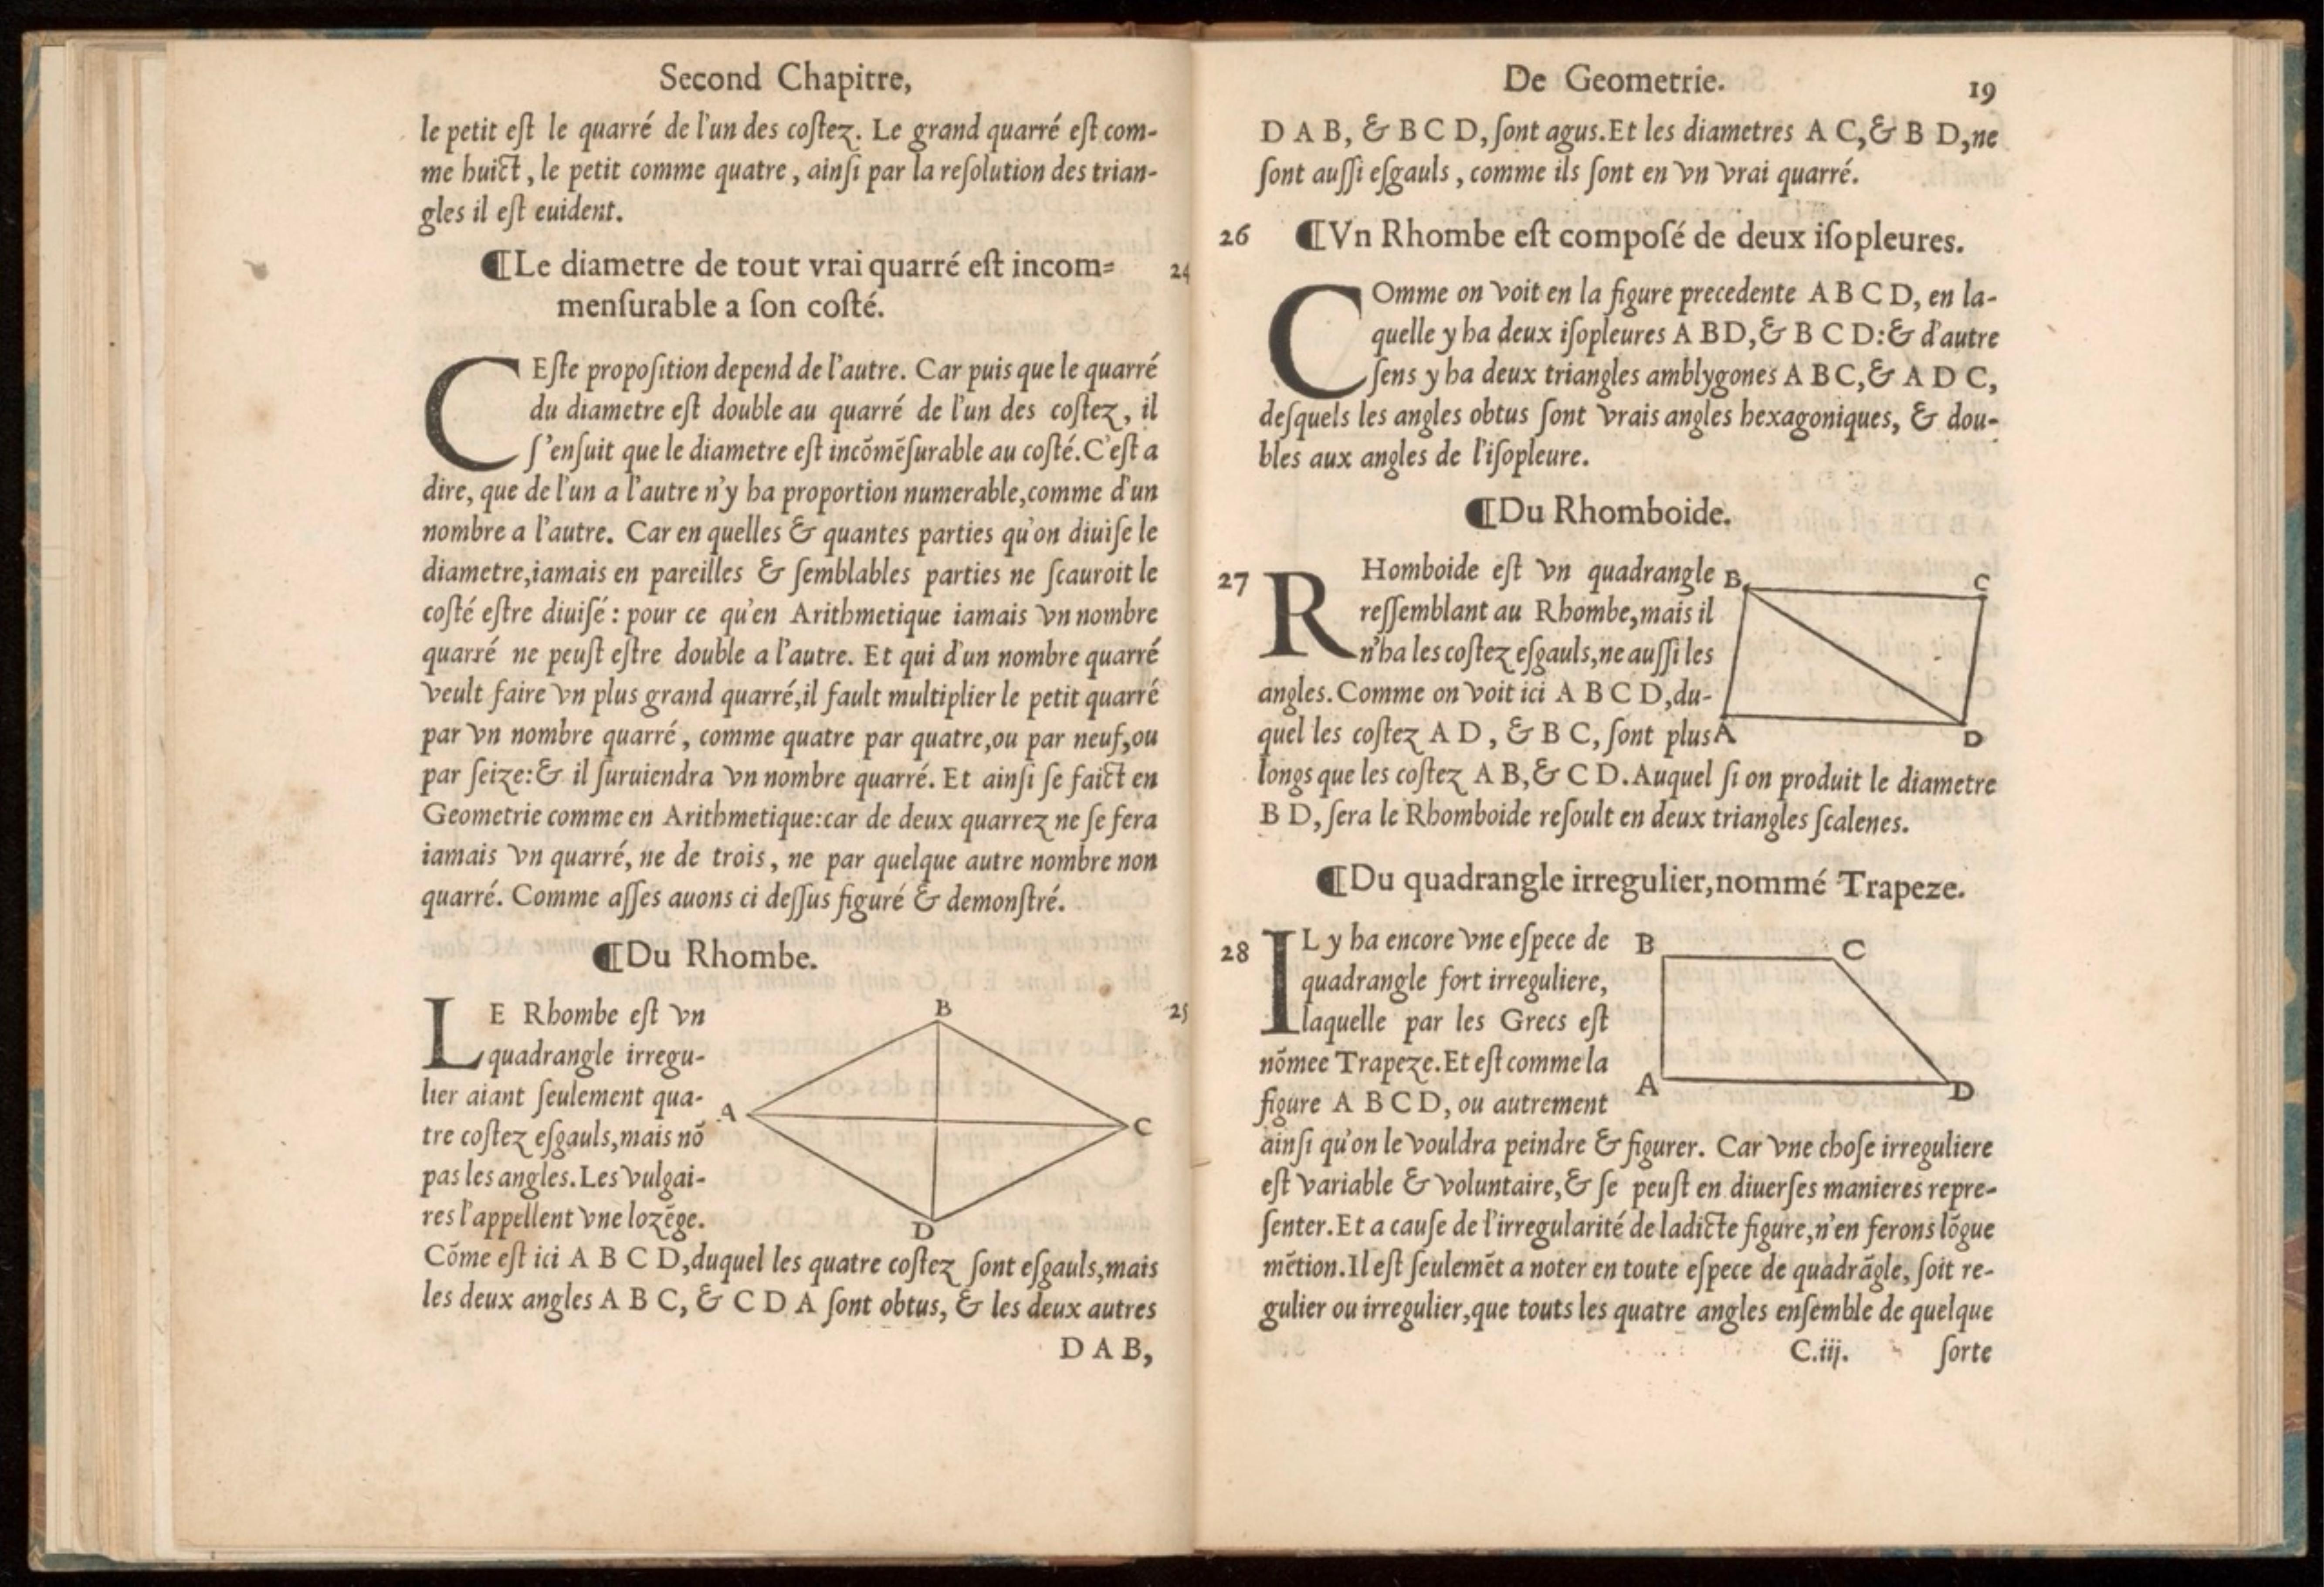 Second Chapitre,
le petit eſt le quarré de l'un des coſtez. Le grand quarré eſt com-
me huict, le petit comme quatre, ainſi par la reſolution des trian-
gles il eſt euident.
¶Le diametre de tout vrai quarré eſt incom-
24
menſurable a ſon coſté.
CEſte propoſition depend de l'autre. Car puis que le quarré
du diametre eſt double au quarré de l'un des coſtez, il
ſ'enſuit que le diametre eſt incõmẽſurable au coſté.C'eſt a
dire, que de l'un a l'autre n'y ha proportion numerable,comme d'un
nombre a l'autre. Car en quelles & quantes parties qu'on diuiſe le
diametre,iamais en pareilles & ſemblables parties ne ſcauroit le
coſté eſtre diuiſé : pour ce qu'en Arithmetique iamais vn nombre
quarré ne peuſt eſtre double a l'autre. Et qui d'un nombre quarré
veult faire vn plus grand quarré,il fault multiplier le petit quarré
par vn nombre quarré, comme quatre par quatre,ou par neuf,ou
par ſeize:& il ſuruiendra vn nombre quarré. Et ainſi ſe faict en
Geometrie comme en Arithmetique:car de deux quarrez ne ſe fera
iamais vn quarré, ne de trois, ne par quelque autre nombre non
quarré. Comme aſſes auons ci deſſus figuré & demonſtré.
¶Du Rhombe.
25
LE Rhombe eſt vn
quadrangle irregu-
lier aiant ſeulement qua-
tre coſtez eſgauls,mais nõ
pas les angles.Les vulgai-
res l'appellent vne lozẽge.
B
A
C
D
Cõme eſt ici A B C D,duquel les quatre coſtez ſont eſgauls,mais
les deux angles A B C, & C D A ſont obtus, & les deux autres
D A B,
De Geometrie.
19
D A B, & B C D, ſont agus.Et les diametres A C,& B D,ne
ſont auſſi eſgauls, comme ils ſont en vn vrai quarré.
26
¶Vn Rhombe eſt compoſé de deux iſopleures.
COmme on voit en la figure precedente A B C D, en la-
quelle y ha deux iſopleures A BD,& B C D:& d'autre
ſens y ha deux triangles amblygones A B C,& A D C,
deſquels les angles obtus ſont vrais angles hexagoniques, & dou-
bles aux angles de l'iſopleure.
¶Du Rhomboide.
27
RHomboide eſt vn quadrangle
reſſemblant au Rhombe,mais il
n'ha les coſtez eſgauls,ne auſſi les
angles.Comme on voit ici A B C D,du-
quel les coſtez A D, & B C, ſont plus
B
C
A
D
longs que les coſtez A B,& C D.Auquel ſi on produit le diametre
B D, ſera le Rhomboide reſoult en deux triangles ſcalenes.
¶Du quadrangle irregulier,nommé Trapeze.
28
IL y ha encore vne eſpece de
quadrangle fort irreguliere,
laquelle par les Grecs eſt
nõmee Trapeze.Et eſt comme la
figure A B C D, ou autrement
B
C
A
D
ainſi qu'on le vouldra peindre & figurer. Car vne choſe irreguliere
eſt variable & voluntaire,& ſe peuſt en diuerſes manieres repre-
ſenter.Et a cauſe de l'irregularité de ladicte figure,n'en ferons lõgue
mẽtion.Il eſt ſeulemẽt a noter en toute eſpece de quadrãgle, ſoit re-
gulier ou irregulier,que touts les quatre angles enſemble de quelque
C.iij.
ſorte